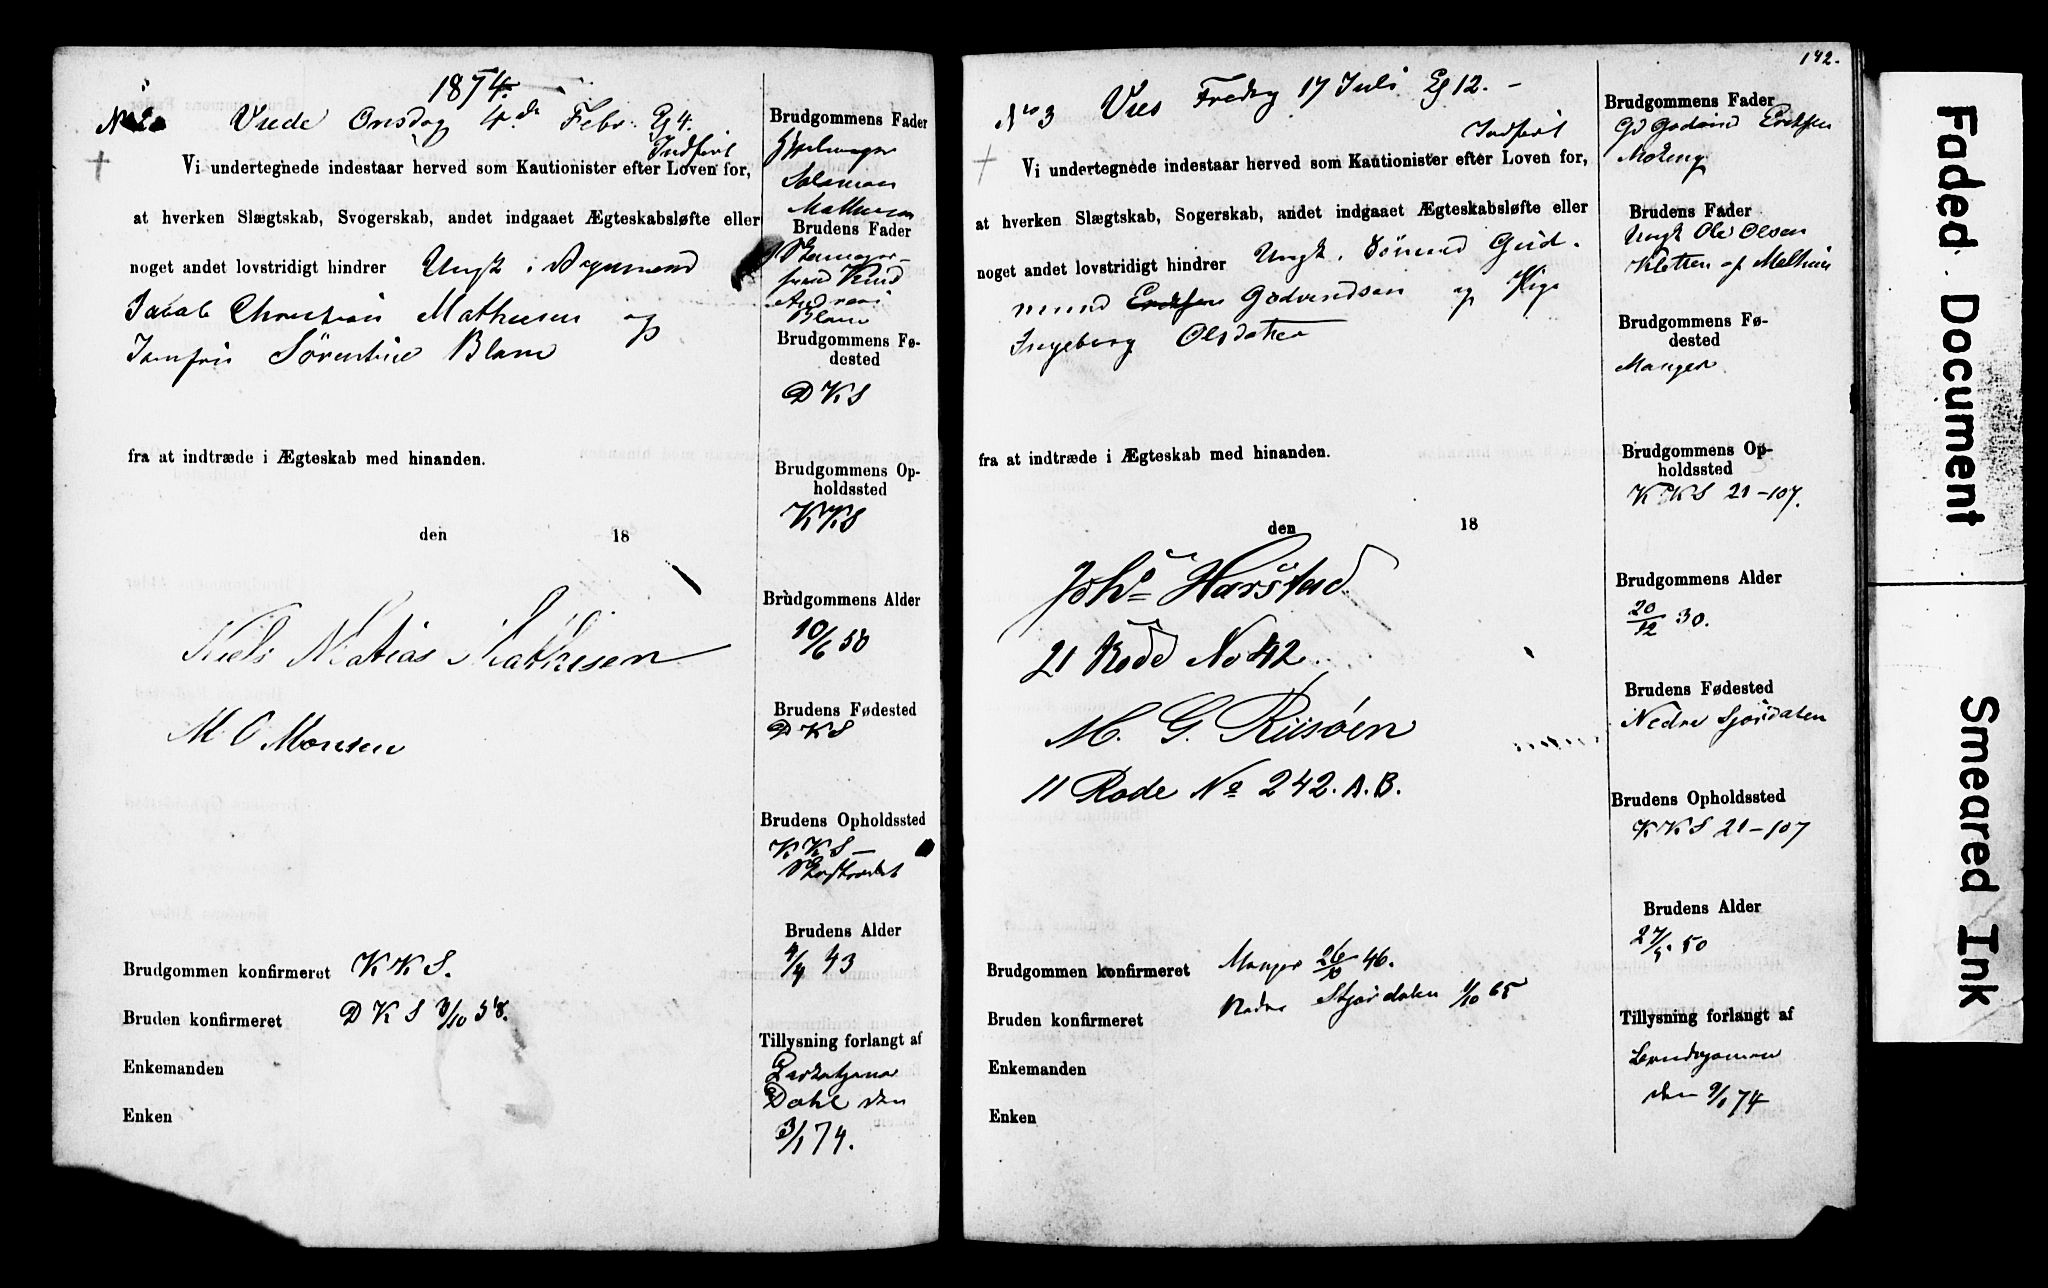 1874.
No 2 Viede Onsdag 4de Febr. Kl 4.
Indført
Vi undertegnede indestaar herved som Kautionister efter Loven for,
at hverken Slægtskab, Svogerskab, andet indgaaet Ægteskabsløfte eller
noget andet lovstridigt hindrer Ungk.
Jacob Christian Mathiesen og
Jomfru Sørentine Blom
fra at indtræde i Ægteskab med hinanden.
den 18
Niels Matias Mathisen
M. O Monsen
Brudgommen konfirmeret KKS.
Bruden konfirmeret DKS 3/10 58.
Enkemanden
Enken
Brudgommens Fader
Salomon
Mathiesen
Brudens Fader
Knud
Andreas
Blom
Brudgommens Fø-
dested
DKS
Brudgommens Op-
holdssted
KKS
Brudgommens Alder
10/6 50
Brudens Fødested
DKS
Brudens Opholdssted
KKS –
Brudens Alder
4/4 43
Tillysning forlangt af
Dahl den
3/1 74.
142.
No 3 Vies Fredag 17 Juli Kl 12. –
Indført
Vi undertegnede indestaar herved som Kautionister efter Loven for,
at hverken Slægtskab, Sogerskab, andet indgaaet Ægteskabsløfte eller
noget andet lovstridigt hindrer Ungk. Gud-
mund Eriksen Godvindsen og Pige
Ingeborg Olsdatter
fra at indtræde i Ægteskab med hinanden.
den 18
Johs Harstad
21 Rode No 42.
M. G. Riisøen
11 Rode No 242. A. B.
Brudgommen konfirmeret Manger 26/10 46.
Bruden konfirmeret Nedre Stjørdalen 1/10 65
Enkemanden
Enken
Brudgommens Fader
Godvind Eriksen
Brudens Fader
Ungk Ole Olsen
Kletten af Melhus
Brudgommens Fø-
dested
Manger
Brudgommens Op-
holdssted
KKS 21-107.
Brudgommens Alder
20/12 30.
Brudens Fødested
Nedre Stjørdalen
Brudens Opholdssted
KKS 21-107
Brudens Alder
27/5 50
Tillysning forlangt af
Brudgommen
den 9/1 74
Faded Document
Smeared Ink